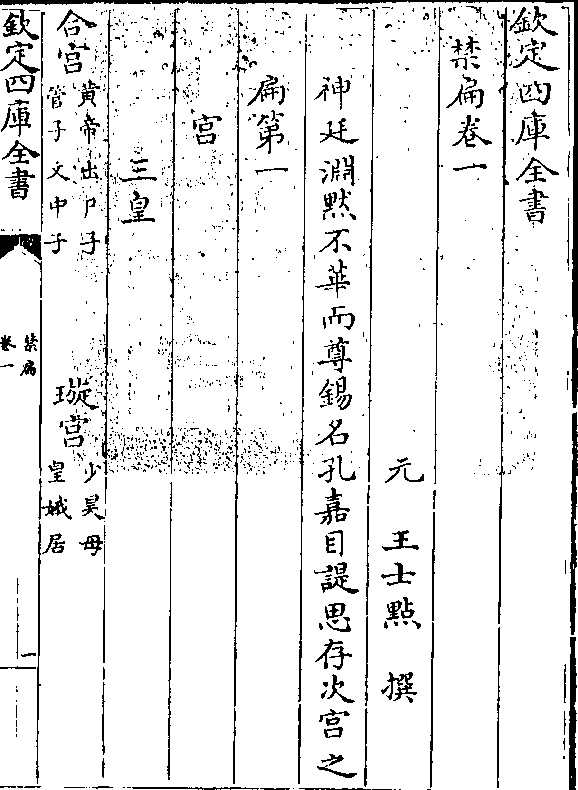 欽定四庫全書
禁扁卷一
元 王士點 撰
神廷淵黙不華而尊錫名孔嘉目諟思存次宫之
扁第一
宫
三皇
合宫 黄帝出尸子
管子文中子
璇宫 少昊母
皇娥居
欽定四庫全書
禁扁
卷一
一